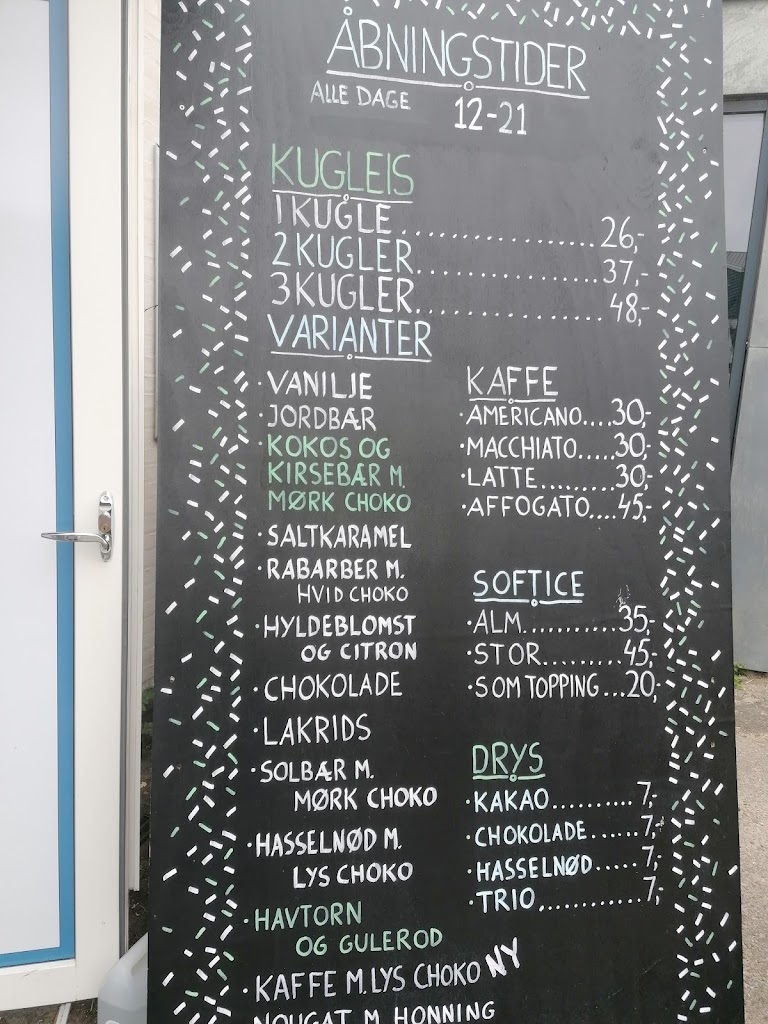 ÅBNINGSTIDER
ALLE DAGE 12-21
KUGLEIS
1 KUGLE..................26,-
2 KUGLER................37,-
3 KUGLER................48,-
VARIANTER
·VANILJE
·JORDBÆR
·KOKOS OG
KIRSEBÆR M.
MØRK CHOKO
·SALTKARAMEL
·RABARBER M.
HVID CHOKO
·HYLDEBLOMST
OG CITRON
·CHOKOLADE
·LAKRIDS
·SOLBÆR M.
MØRK CHOKO
·HASSELNØD M.
LYS CHOKO
·HAVTORN
OG GULEROD
·KAFFE M. LYS CHOKO NY
NOUGAT M HONNING
KAFFE
·AMERICANO....30,-
·MACCHIATO.....30,-
·LATTE.........30,-
·AFFOGATO....45,-
SOFTICE
·ALM............35,-
·STOR.........45,-
·SOM TOPPING...20,-
DRYS
·KAKAO..........7,-
·CHOKOLADE......7,-
·HASSELNØD.....7,-
·TRIO............7,-